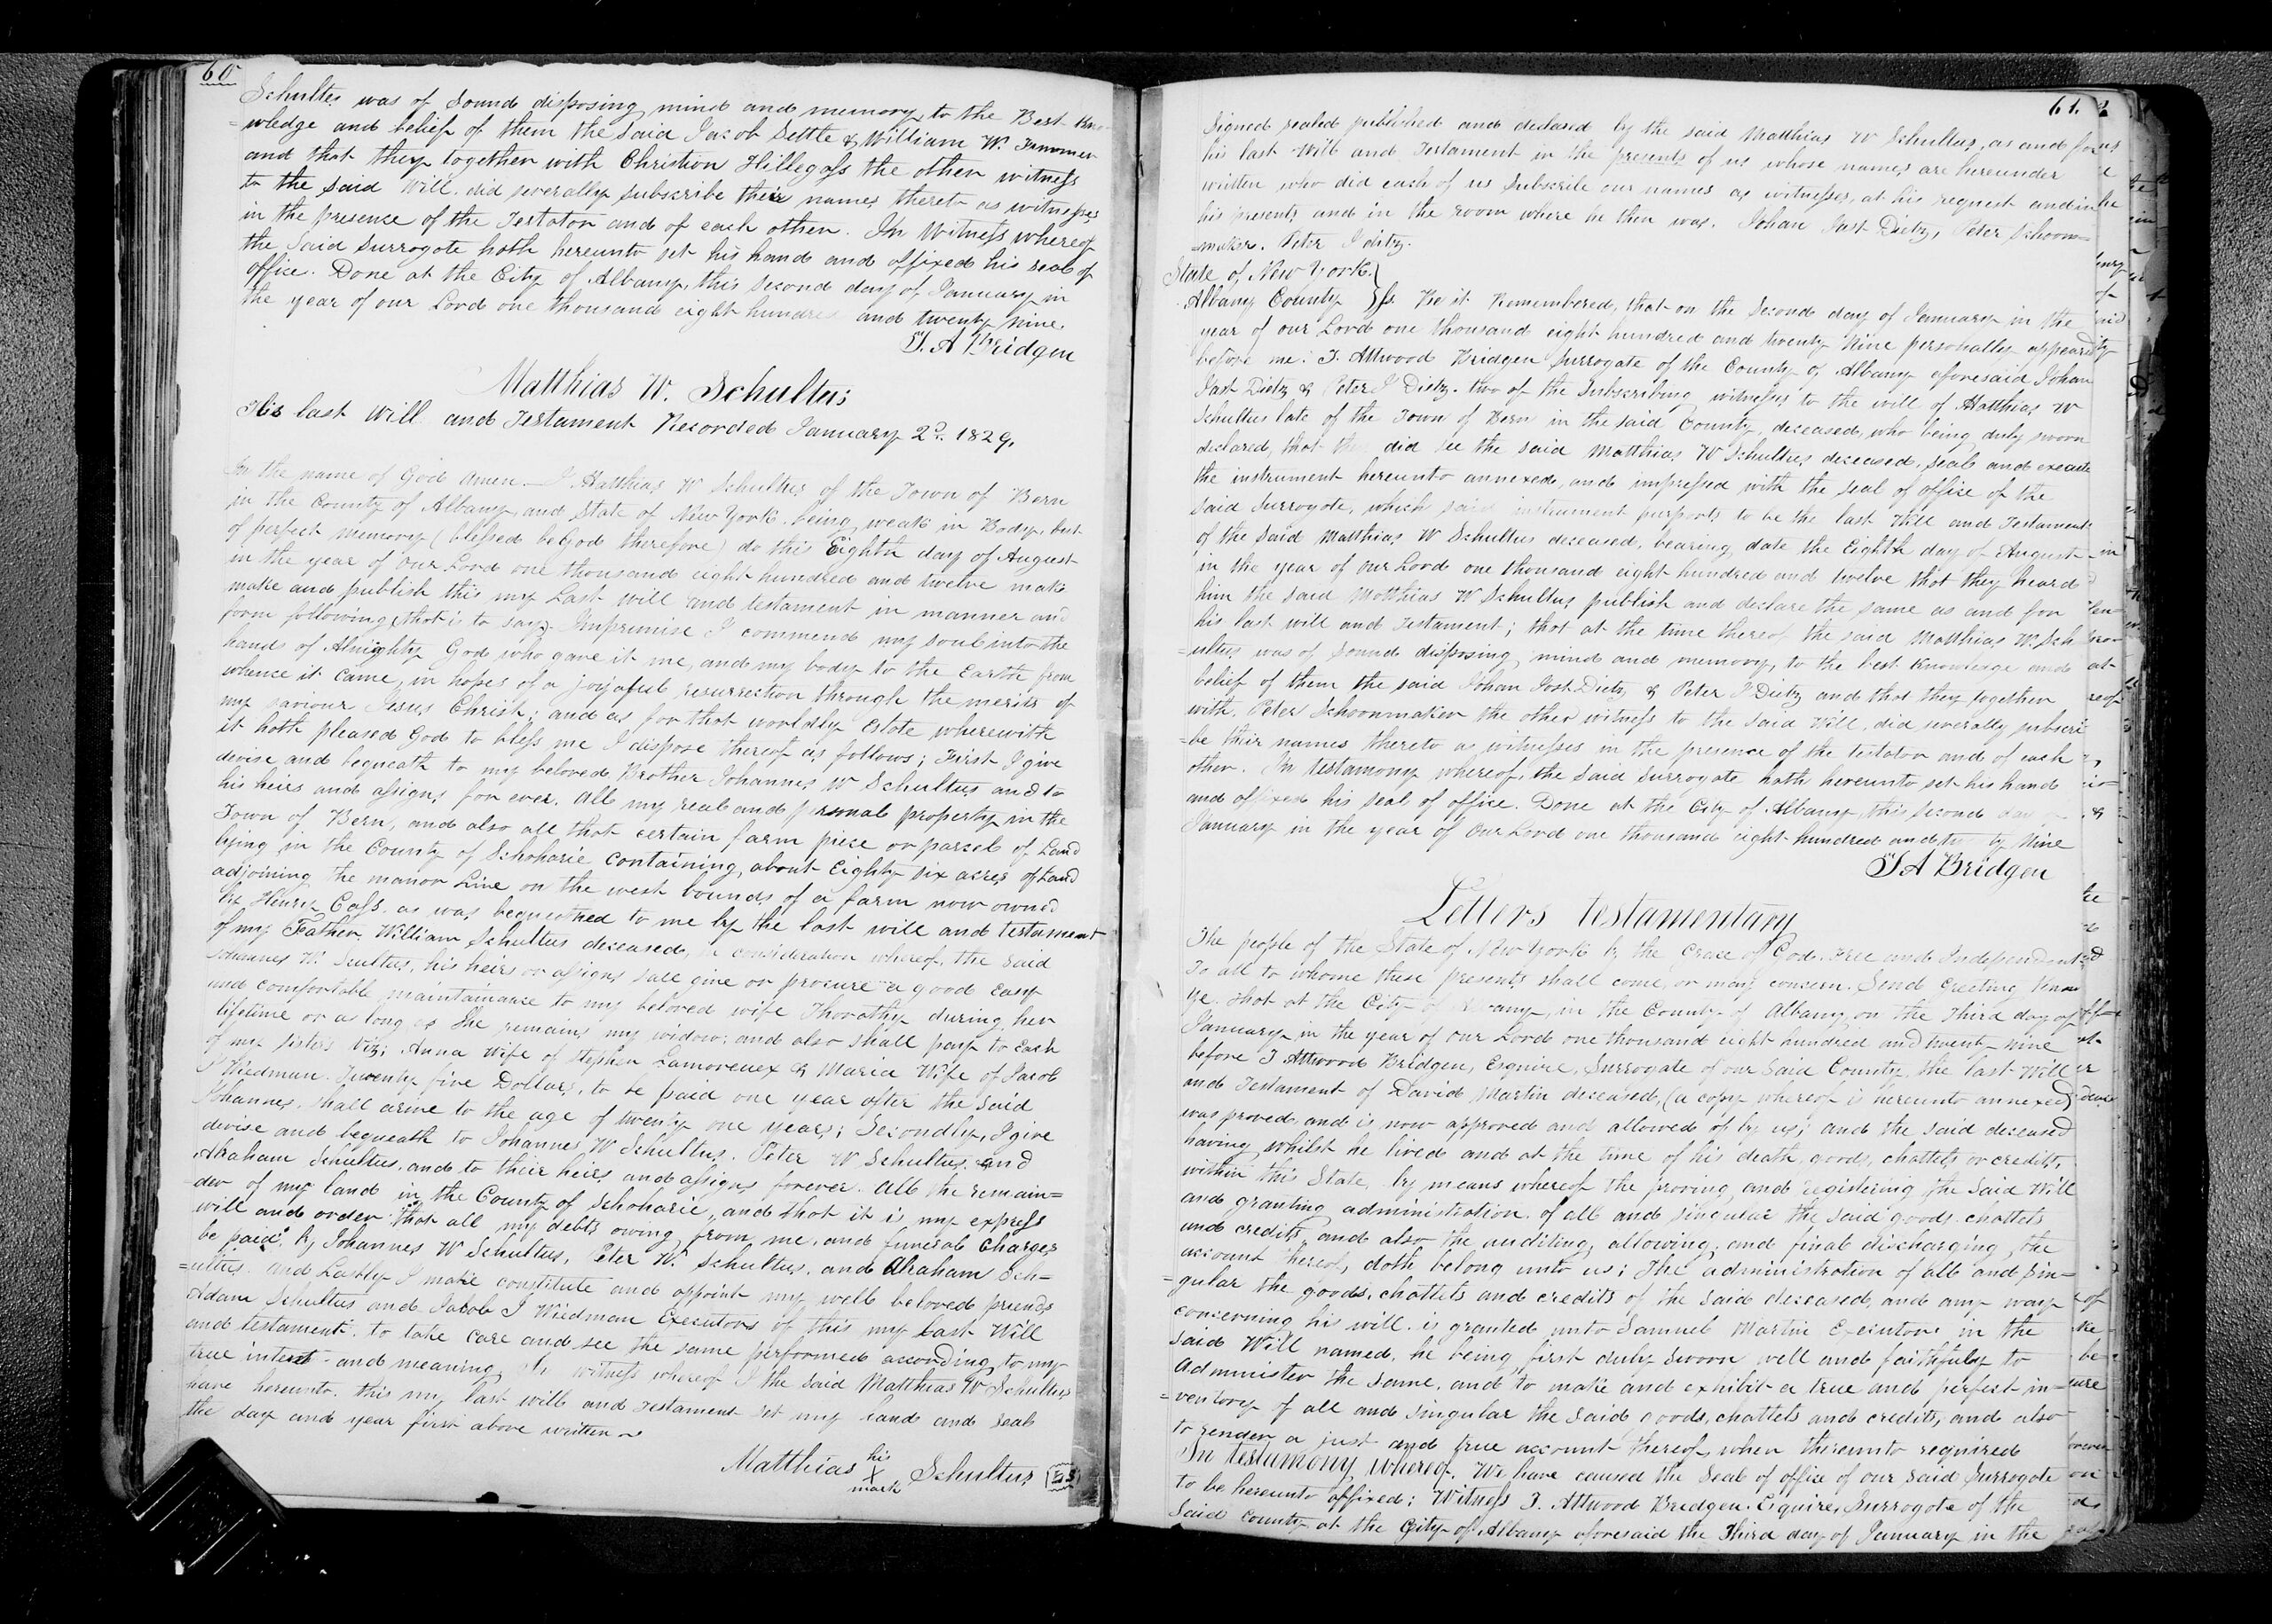 60
Schultes was of Sound disposing mind and memory, to the Best kno
=wledge and belief of them the said Jacob Settle & William W.
and that they together with Christion Hillegass the other witness
to the said Will did severally subscribe their names thereto as witnesses
in the presence of the Testator and of each other. In Witness whereof
the said Surrogate hath hereunto set his hand and affixed his seal of
office. Done at the City of Albany, this second day of January in
the year of our Lord one thousand eight hundred and twenty nine.
T. A Bridgen
Matthias W. Schultus
His last Will and Testament Recorded January 2d. 1829.
In the name of God Amen. I Matthias W Schultus of the Town of Bern
in the County of Albany and State of New York being weak in Body, but
of perfect memory (blessed be God therefore) do this Eighth day of August
in the year of our Lord one thousand eight hundred and twelve make
make and publish this my Last will and testament in manner and
form following, that is to say). Imprimise I commend my soul into the
hands of Almighty God who gave it me, and my body to the Earth from
whence it came, in hopes of a joyaful resurrection through the merits of
my saviour Jesus Christ; and as for that worldly Estate wherewith
it hath pleased God to bless me I dispose thereof as follows; First I give
devise and bequeath to my beloved Brother Johannes W Schultus and to
his heirs and assigns for ever. All my real and personal property in the
Town of Bern, and also all that certain farm piece or parcel of Land
lying in the County of Schoharie containing about Eighty six acres of Land
adjoining the manor Line on the west bounds of a farm now owned
by Henry Cass as was bequeathed to me by the last will and testament
of my Father William Schultus deceased, in consideration whereof, the said
Johannes W. Scultus, his heirs or assigns sall give or procure a good Easy
and comfortable maintainance to my beloved wife Thorathy during her
lifetime or as long as She remains my widow; and also shall pay to Each
of my sisters Viz; Anna Wife of Stephen Lamoreuex & Maria Wife of Jacob
Wiedman Twenty five Dollars, to be paid one year after the said
Johannes shall arive to the age of twenty one years; Secondly, I give
devise and bequeath to Johannes W Schultus. Peter W Schultus and
Abraham Schultus. and to their heirs and assigns forever. All the remain=
der of my land in the County of Schoharie, and that it is my express
will and order that all my debts owing from me, and funeral Charges
be paid by Johannes W Schultus, Peter W. Schultus. and Abraham Sch=
=ultus. And Lastly I make constitute and appoint my well beloved friends
Adam Schultus and Jacob J Wiedman Executors of this my last Will
and testament. to take care and see the same performed according to my
true intent and meaning In witness whereof I the said Matthias W Schultus
have hereunto this my last will and testament set my hand and seal
the day and year first above written
Matthias his X mark Schultus LS
61.
Signed sealed published and declared by the said Matthias W Schultus, as and for
his last Will and Testament in the presents of us whose names are hereunder
written who did each of us Subscribe our names as witnesses, at his request and in
his presents and in the room where he then was. Johan Jost Dietz, Peter Schoon=
=maker. Peter J dietz.
State of New York }
Albany County } ss. Be it Remembered, that on the Second day of January in the
year of our Lord one thousand eight hundred and twenty Nine personally appeared
before me: T. Attwood Bridgen Surrogate of the County of Albany aforesaid Johan
Jost Dietz & Peter J Dietz. two of the Subscribing witnesses to the will of Matthias W
Schultus late of the Town of Bern in the said County, deceased, who being duly sworn
declared, that they did see the said Matthias W Schultus deceased, seal and execute
the instrument hereunto annexed, and impressed with the seal of office of the
said Surrogate, which said instrument purports to be the last Will and Testament
of the said Matthias W Schultus deceased, bearing date the Eighth day of August
in the year of our Lord one thousand eight hundred and twelve that they heard
him the said Matthias W Schultus publish and declare the same as and for
his last will and Testament; that at the time thereof the said Matthias W. Sch
=ultus was of Sound disposing mind and memory, to the best knowledge and
belief of them the said Johan Jost Dietz & Peter J Dietz and that they together
with Peter Schoonmaker the other witness to the said Will, did severally subscri
=be their names thereto as witnesses in the presence of the testator and of each
other. In testamony whereof, the said Surrogate hath hereunto set his hand
and affixed his seal of office. Done at the City of Albany, this second day of
January in the year of Our Lord one thousand eight hundred and twenty Nine
T A Bridgen
Letters testamentary
The people of the State of New York by the Grace of God. Free and Independent
To all to whome these presents shall come, or may concern. Send Greeting Know
Ye. that at the City of Albany, in the County of Albany on the Third day of
January in the year of our Lord one thousand eight hundred and twenty nine
before T Attwood Bridgen, Esquire, Surrogate of our Said County, the last Will
and Testament of David Martin deceased, (a copy whereof is hereunto annexed)
was proved, and is now approved and allowed of by us; and the said deceased
having whilst he lived and at the time of his death, goods, chattets or credits,
within this State, by means whereof the proving and registering the said Will
and granting administration of all and singular the said goods chattets
and credits, and also the auditing, allowing, and final discharging, the
account thereof, doth belong unto us; The administration of all and Sin=
=gular the goods, chattets and credits of the said deceased, and any way
concerning his will is granted unto Samuel Martin Executor in the
said Will named, he being first duly Sworn well and faithfuly to
Administer the same, and to make and exhibit a true and perfect in=
=ventory of all and singular the said goods, chattets and credits, and also
to render a just and true account thereof, when thereunto required
In testamony whereof, We have caused the Seal of office of our said Surrogate
to be hereunto affixed; Witness T. Attwood Bridgen. Esquire, Surrogate of the
Said County at the City of Albany aforesaid the Third day of January in the